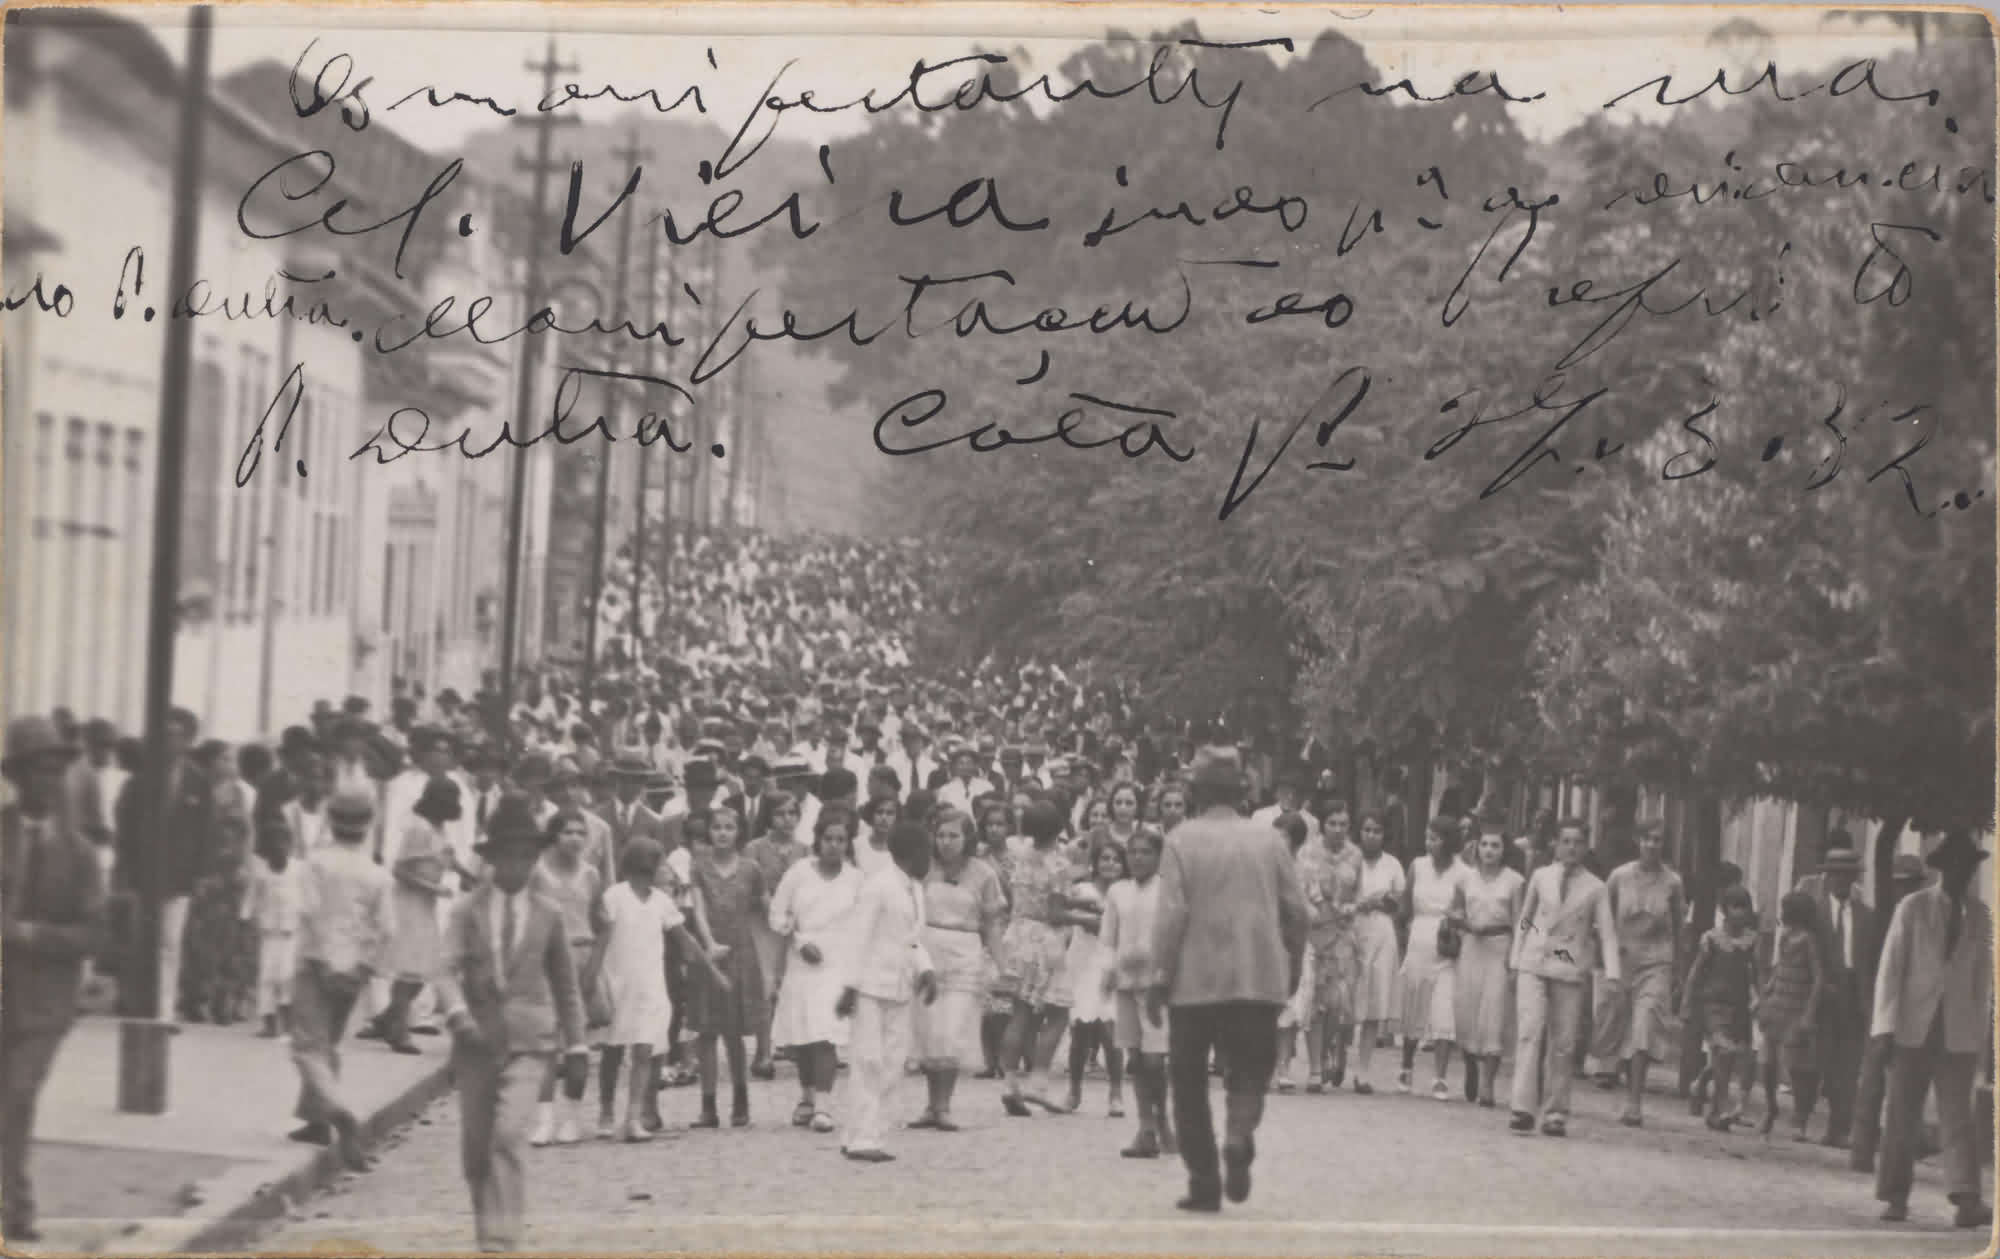 Os manifestantes na rua
Cel. Vieira indo pª a residencia
do P. Dutra. Manifestação ao Prefeito
P. Dutra. Cata ps 27.3.32.